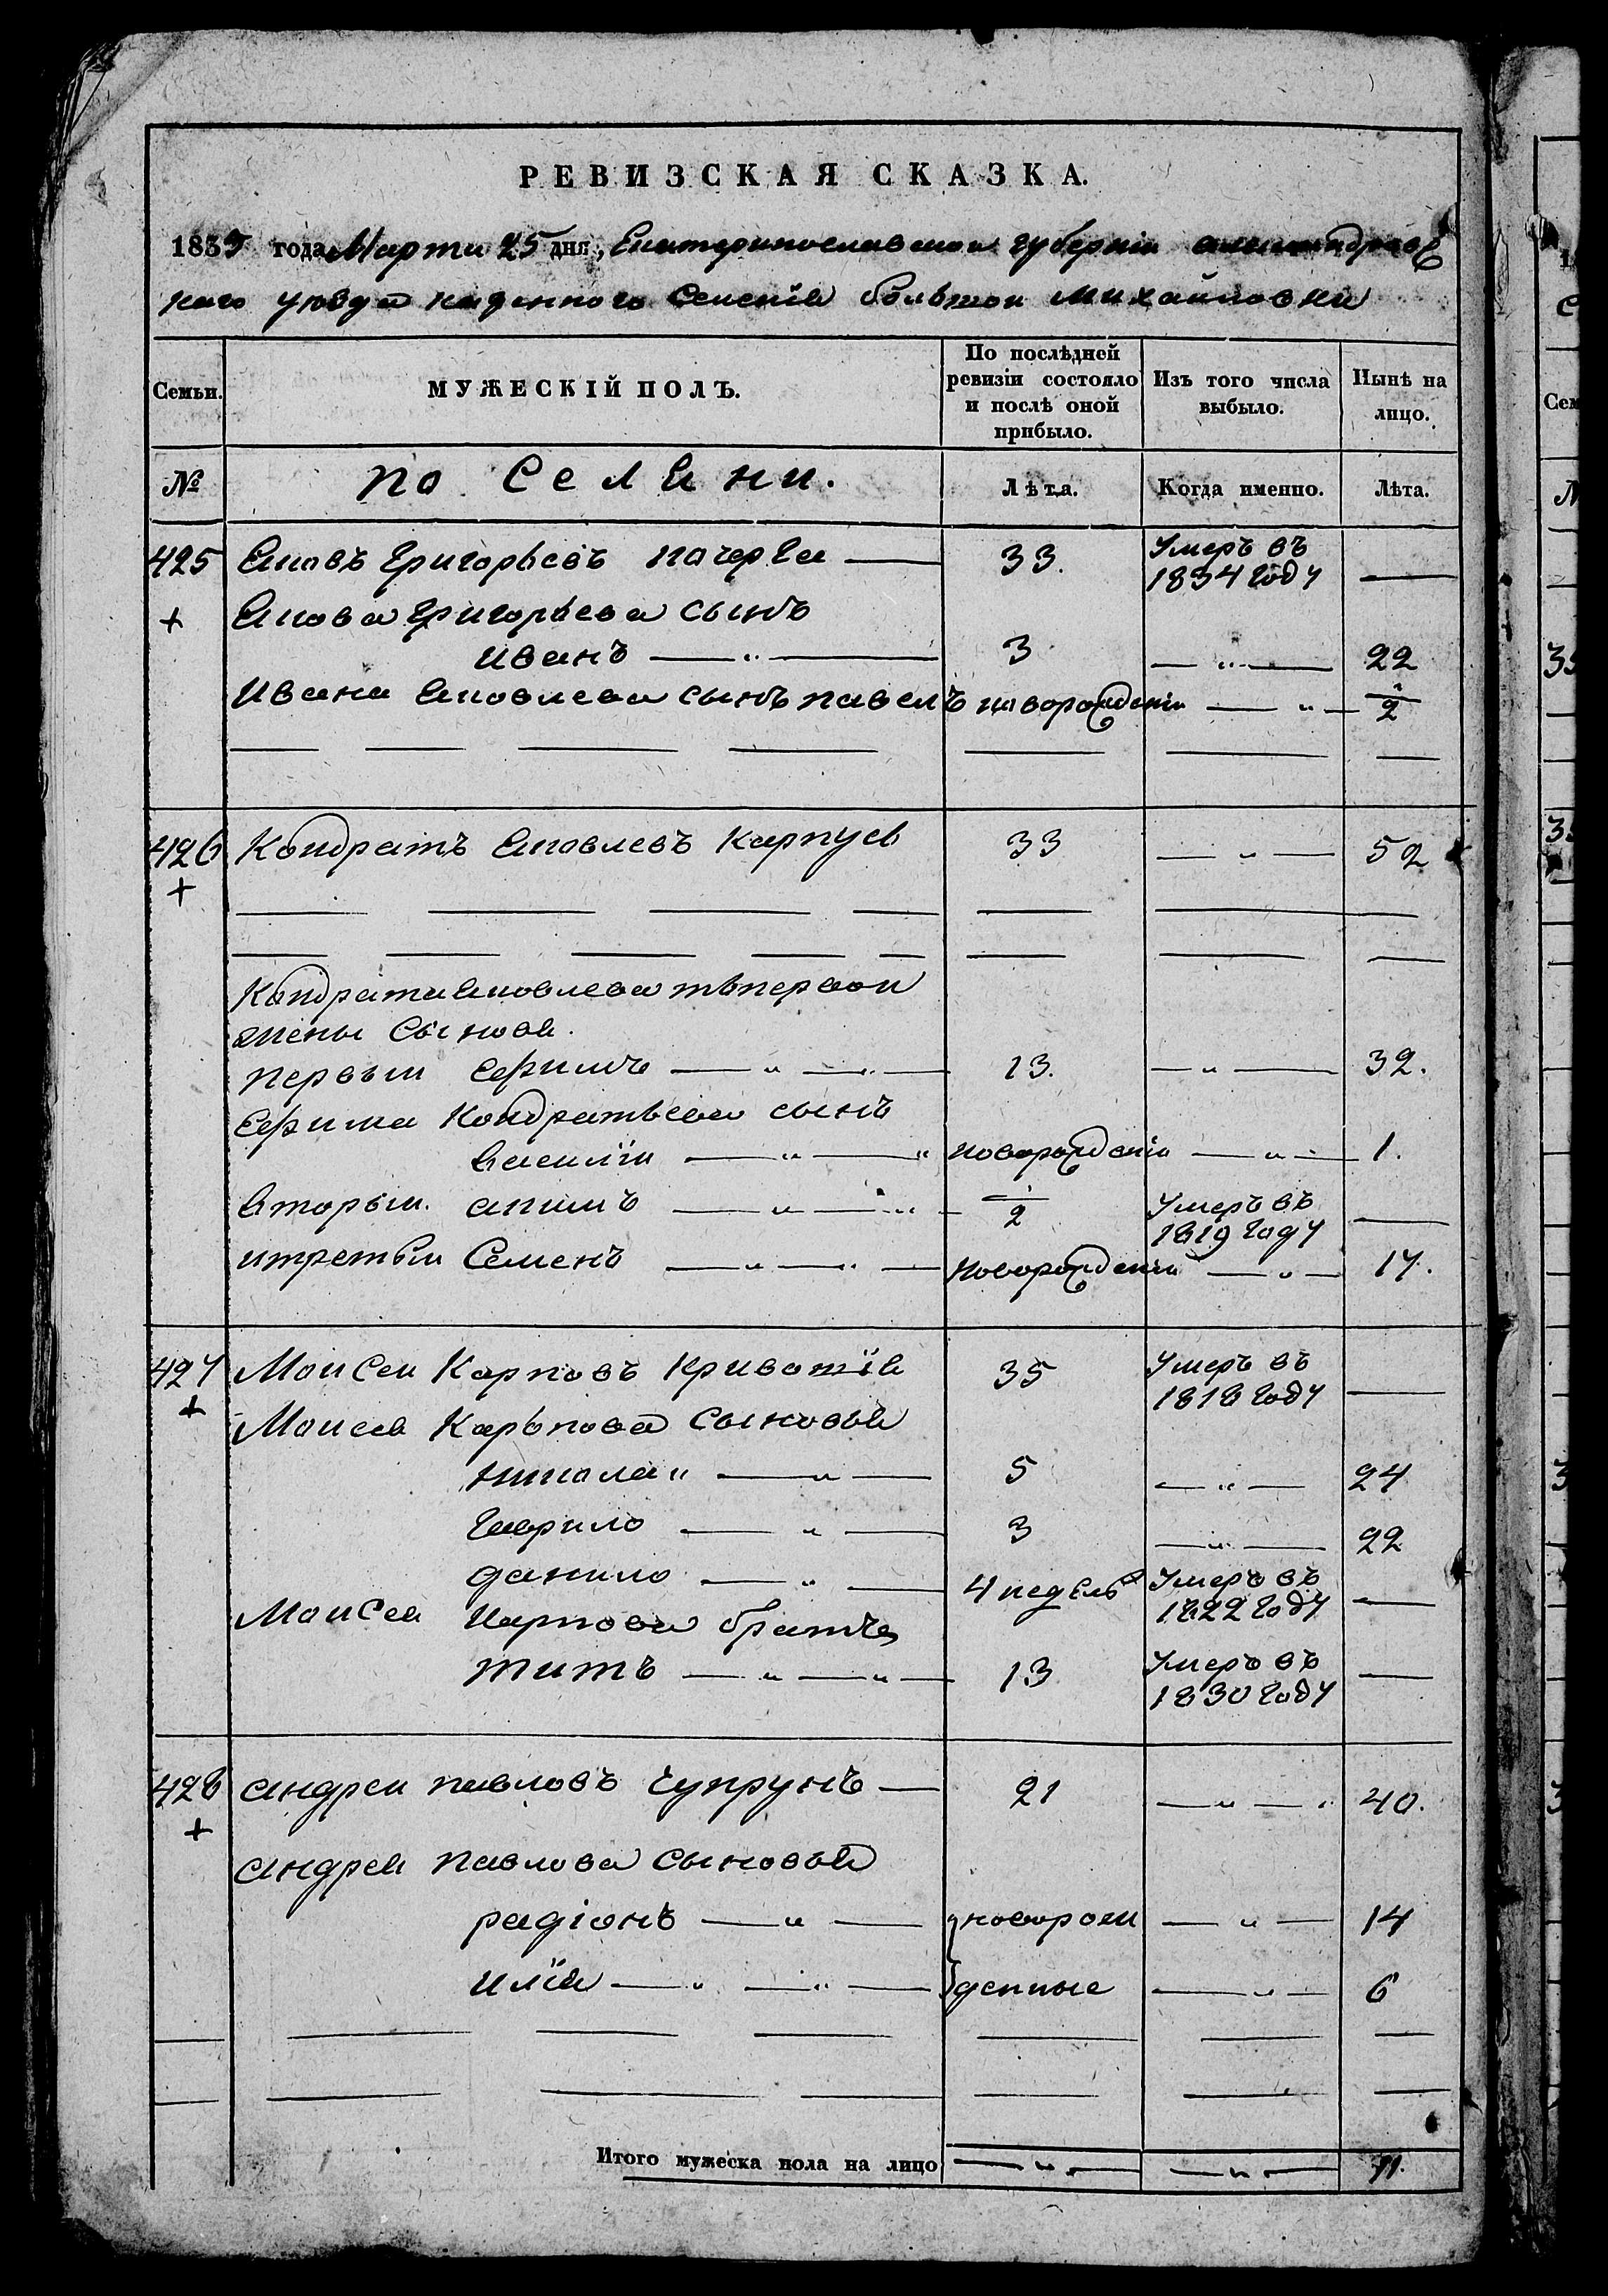 РЕВИЗСКАЯ СКАЗКА.
1835 года Марта 25 дня, Екатеринославской губерніи александровс
каго уѣзда казенного Селенія большой михайловки
Семьи. МУЖЕСКІЙ ПОЛЪ. По послѣдней ревизіи состояло и послѣ оной прибыло. Изъ того числа выбыло. Нынѣ на лицо.
№ по Селѣни. Лѣта. Когда именно. Лѣта.
425 Яковъ Григорьевъ 33. Умеръ въ 1834 году
Якова Григорьева сынъ
иванъ 3 22
Ивана Яковлева сынъ павелъ новорожденій 1/2
426 Кондратъ Яковлевъ Карпуся 33 52
Кондрата Яковлева отъ первой
жены Сынове.
первый Ефимъ 13. 32.
Ефима Кондратьева сынъ
Василій новорожденій 1.
вторый акимъ 1/2 Умеръ въ 1819 году
итретьи Семенъ новорожденій 17.
427 Моисей Карповъ Кривошія 35 Умеръ въ 1818 году
Моисея Карьпова Сыновья
николай 5 24
Гаврило 3 22
данило 4 недель Умеръ въ 1822 году
Моисея Карпова братъ
титъ 13 Умеръ въ 1830 году
428 андрей павловъ Чупрунъ 21 40.
андрея павлова сыновья
радіонъ новорож 14
илія денные 6
Итого мужеска пола на лицо 11.